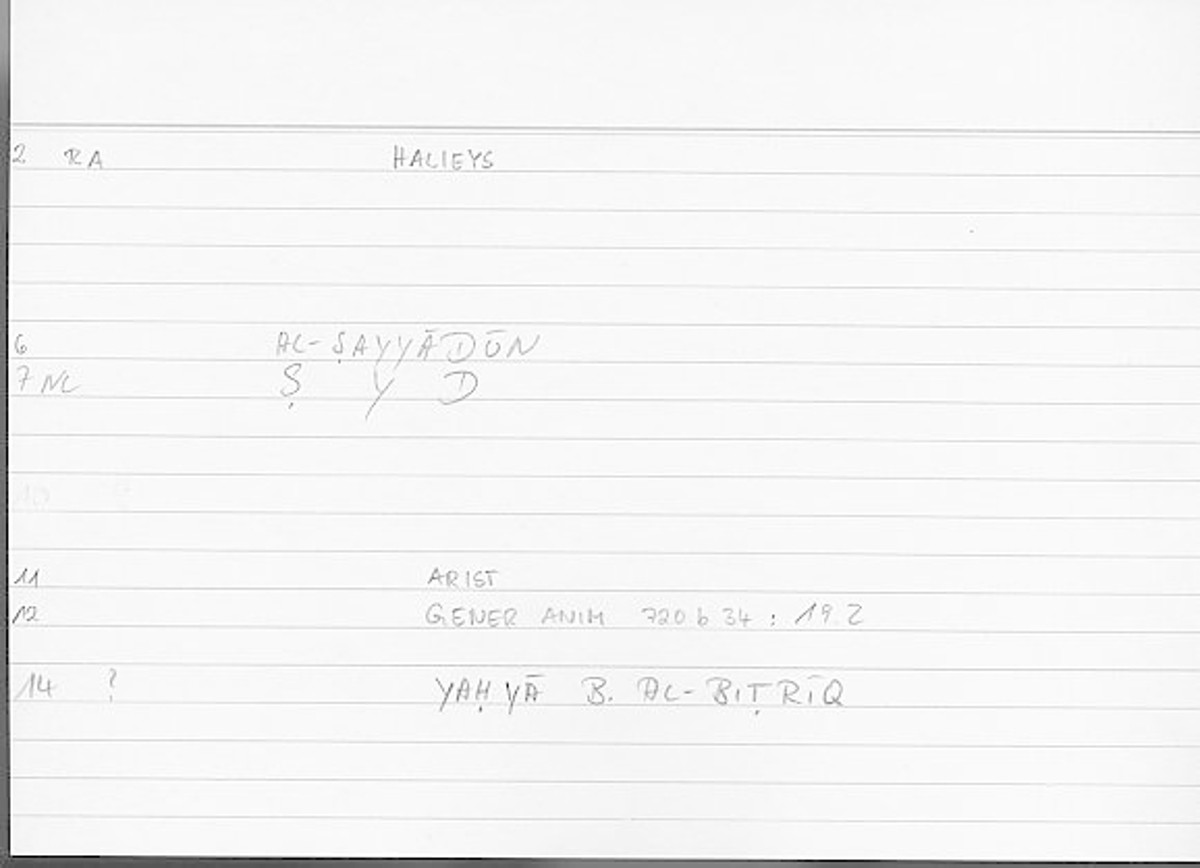 2 RA HALIEYS
6 AL-ṢAYYĀDŪN
7 NL Ṣ Y D
10
11 ARIST
12 GENER ANIM 720 b 34 : 19 2
14 ? YAḤYĀ B. AL-BIṬRĪQ